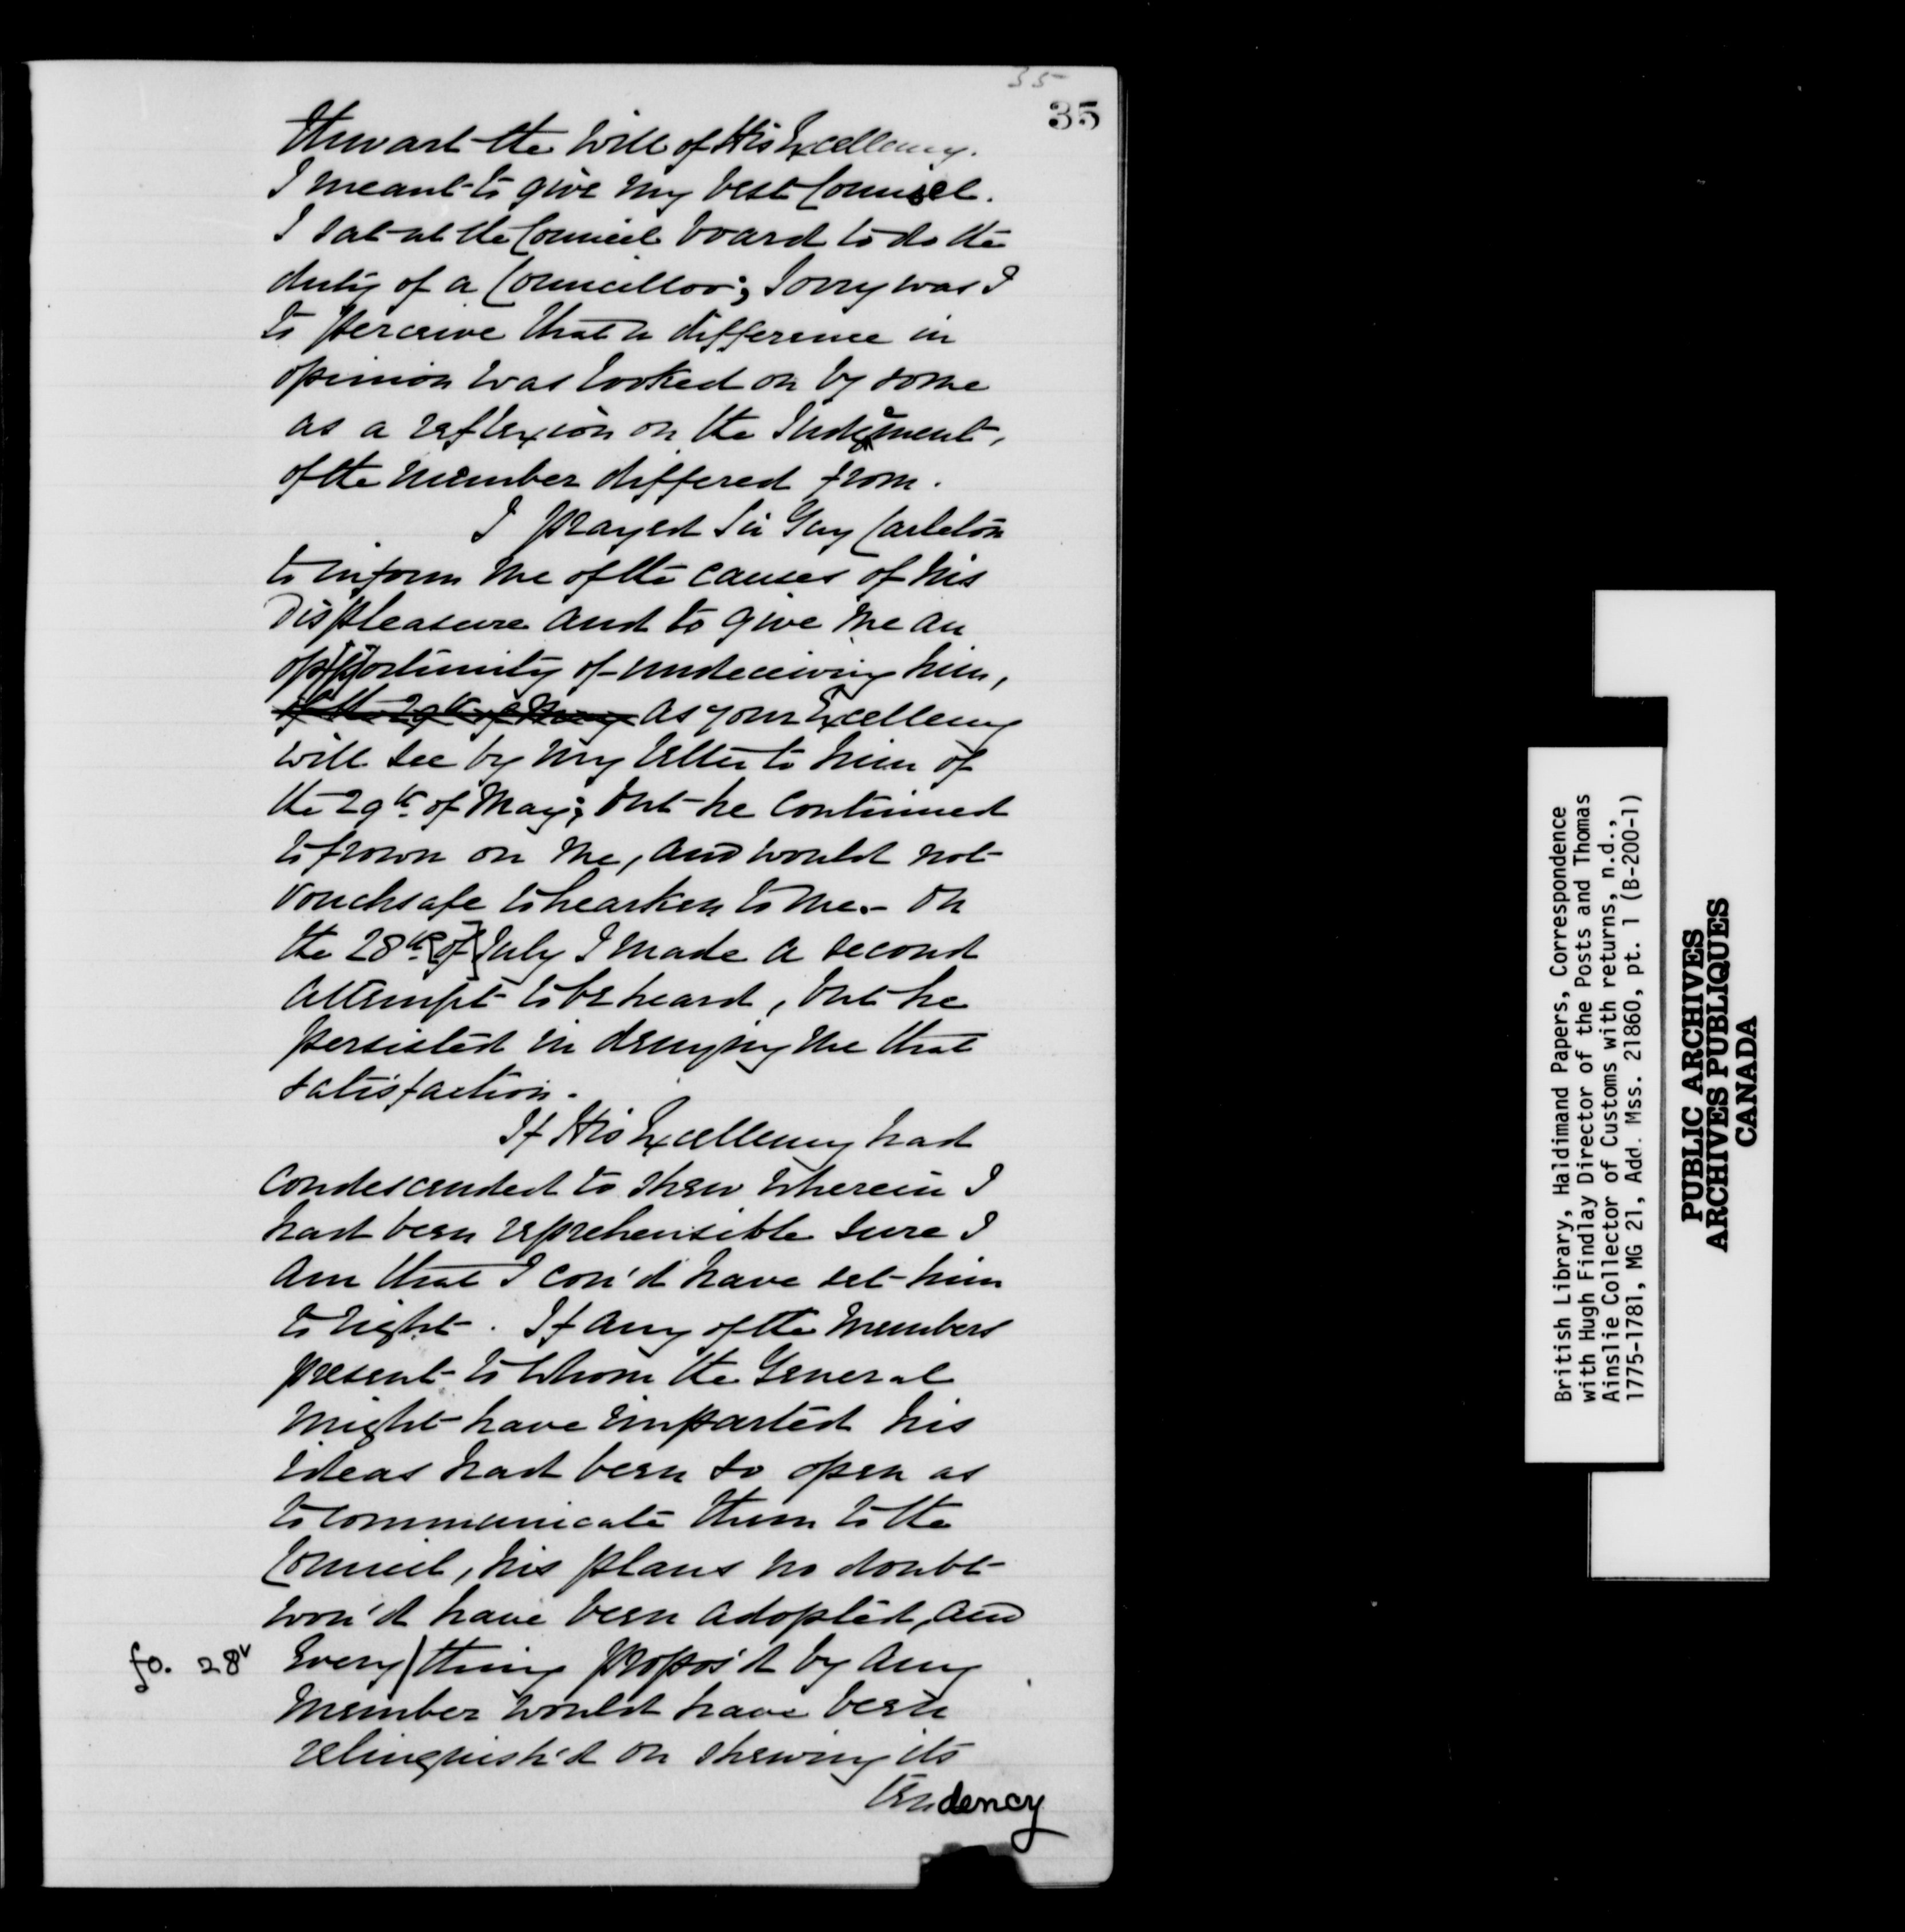 35
35
thwart the will of His Excellency.
I meant to give my best Counsel.
I sat at the Council board to do the
duty of a Councillor; Sorry was I
to perceive that a difference in
opinion was looked on by some
as a reflexion on the Judgement,
of the member differed from.
I prayed Sir Guy Carleton
to inform me of the causes of his
Displeasure and to give me an
opportunity of undeceiving him,
of the 29th of May as your Excellency
will see by my letter to him of
the 29th of May; but he continued
to frown on me, and would not
vouchsafe to hearken to me. – On
the 28th [of] July I made a second
attempt to be heard, but he
persisted in denying me that
satisfaction.
If His Excellency had
condescended to shew wherein I
had been reprehensible sure I
am that I cou'd have set him
to right. If any of the Members
present to whom the General
might have imparted his
ideas had been so open as
to communicate them to the
Council, his plans no doubt
wou'd have been adopted, and
fo. 28v every/thing propos'd by any
member would have been
relinquish'd on shewing its
tendency
British Library, Haldimand Papers, Correspondence
with Hugh Findlay Director of the Posts and Thomas
Ainslie Collector of Customs with returns, n.d.,
1775-1781, MG 21, Add. Mss. 21860, pt. 1 (B-200-1)
PUBLIC ARCHIVES
ARCHIVES PUBLIQUES
CANADA